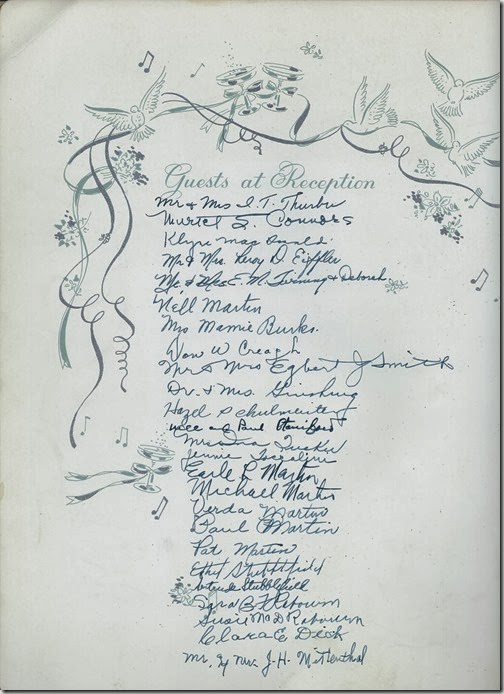 Guests at Reception
Mr & Mrs I. T. Thurber
Muriel S. Connors
Klyne Mac Donald
Mr & Mrs. Leroy D. Eiffler
Mr. & Mrs. E. M. & Deborah
Nell Martin
Mrs Mamie Burks.
W Creagh
Mr & Mrs Egbert J Smith
Dr. & Mrs. Ginsburg
Hazel
and Paul
Mrs Ira Tucker
Jennie
Earle R Martin
Michael Martin
Verda Martin
Paul Martin
Pat Martin
Ethel Stubblefield
Stubblefield
Sara B
Susie Mc D
Clara E Dick
Mr. & Mrs. J. H. Mittenthal